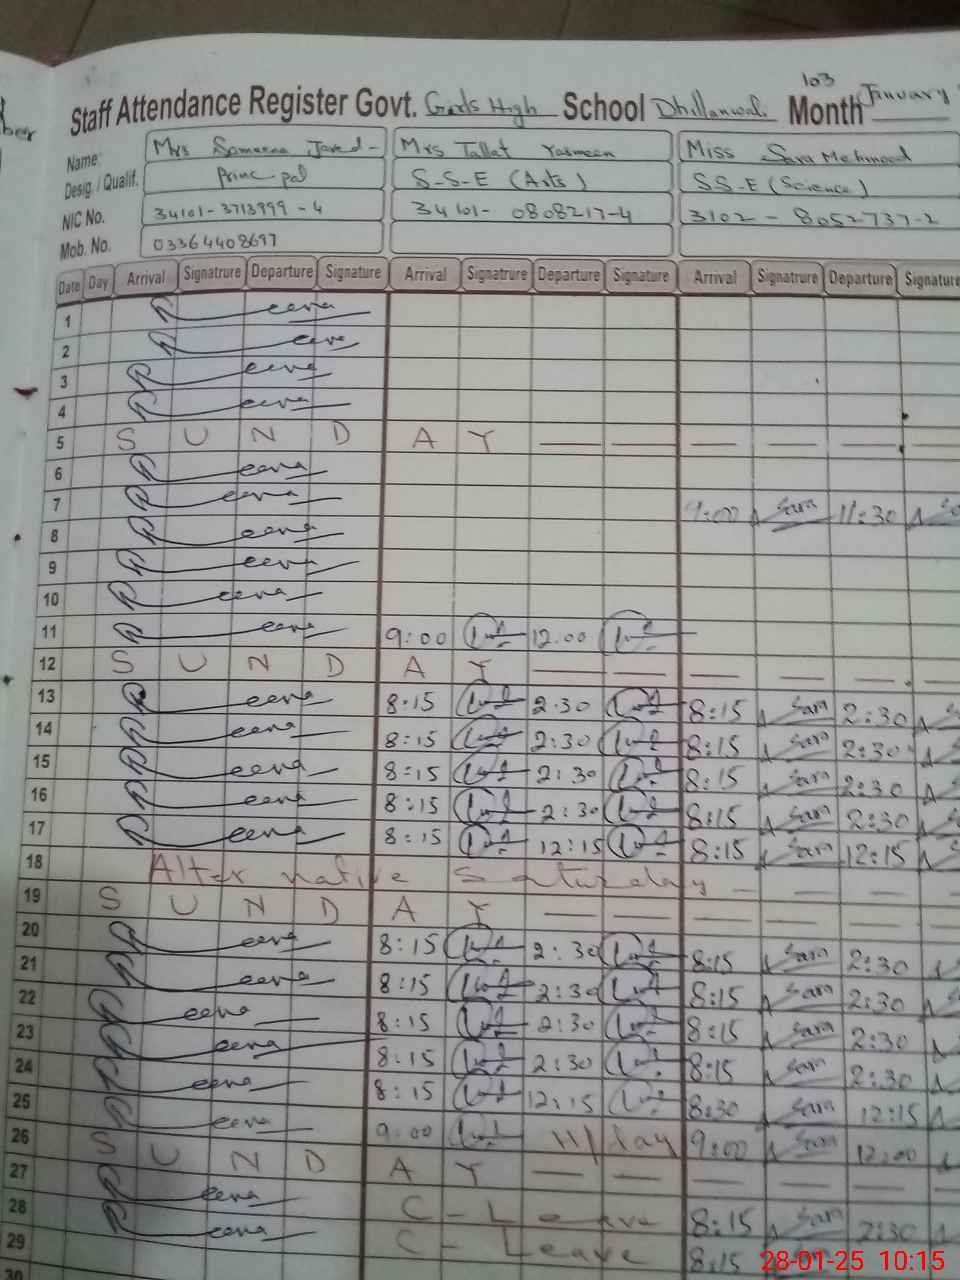 ber
103
Staff Attendance Register Govt. Girls High School Dhillanwali Month January
Name: Mrs Sameena Javed - Mrs Tallat Yasmeen Miss Sara Mehmood
Desig. / Qualif. Principal S-S-E (Arts) SS-E (Science)
NIC No. 34101-3713999-4 34101-0808217-4 3102-8052737-2
Mob. No. 03364408697
Date Day Arrival Signatrure Departure Signature Arrival Signatrure Departure Signature Arrival Signatrure Departure Signature
1
2
3
4
5 S U N D A Y
6
7 9:00 Sara 11:30
8
9
10
11 9:00 12.00
12 S U N D A Y
13 8:15 2.30 8:15 Sara 2:30
14 8:15 2:30 8:15 Sara 2:30
15 8:15 2:30 8:15 Sara 2:30
16 8:15 2:30 8:15 Sara 2:30
17 8:15 12:15 8:15 Sara 12:15
18 Alternative Saturday
19 S U N D A Y
20 8:15 2:30 8:15 Sara 2:30
21 8:15 2:30 8:15 Sara 2:30
22 8:15 2:30 8:15 Sara 2:30
23 8:15 2:30 8:15 Sara 2:30
24 8:15 12:15 8:30 Sara 12:15
25 9:00 9:00 Sara 12:00
26 S U N D A Y
27 C - Leave 8:15 Sara 2:30
28 C - Leave 8:15
29
30
28-01-25 10:15